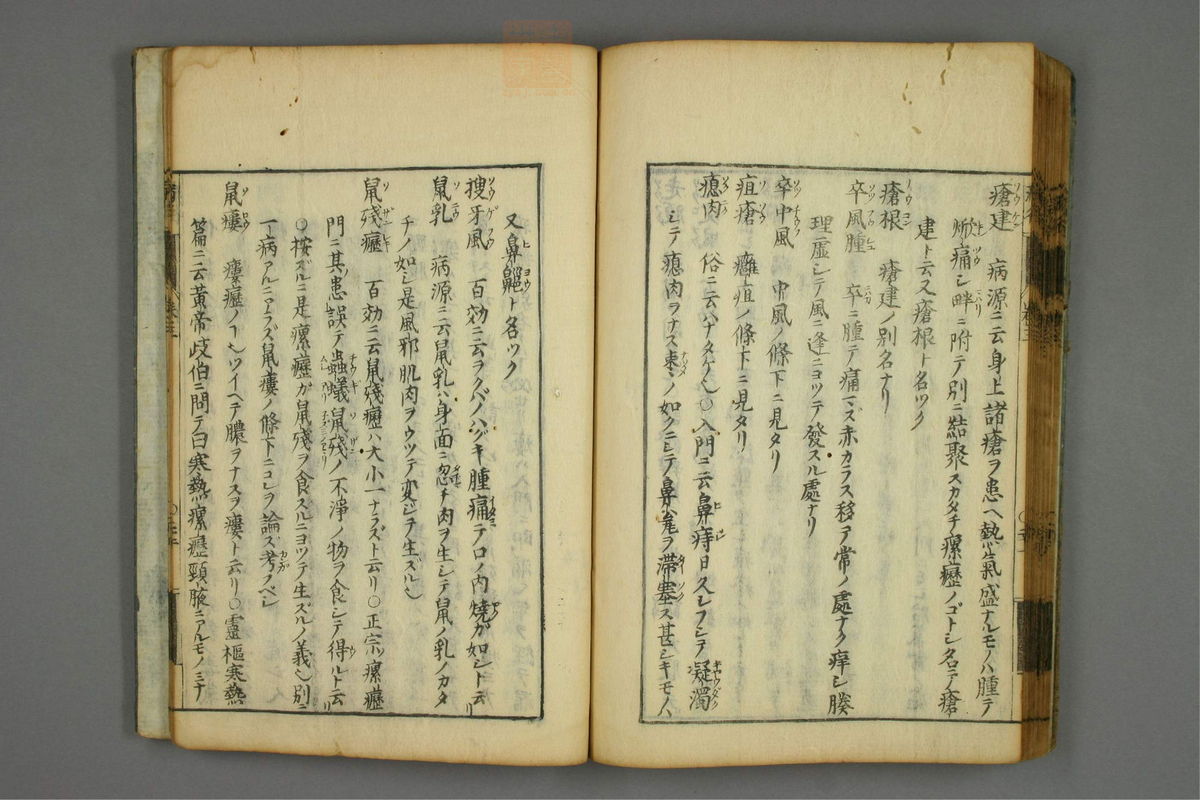 瘡建 病源ニ云身上諸瘡ヲ患ヘ熱氣盛ナルモノハ腫テ
焮痛シ畔ニ附テ別ニ結聚スカタチ瘰癧ノゴトシ名テ瘡
建ト云又瘡根ト名ツク
瘡根 瘡建ノ別名ナリ
卒風腫 卒ニ腫テ痛マズ赤カラス移ヿ常ノ處ナク痒シ腠
理虚シテ風ニ逢ニヨツテ發スル處ナリ
卒中風 中風ノ條下ニ見タリ
疽瘡 癰疽ノ條下ニ見タリ
瘜肉 俗ニ云ハナタケ也○入門ニ云鼻痔日久シフシテ凝濁
シテ瘜肉ヲナス棗ノ如クニシテ鼻竅ヲ滞塞ス甚シキモノハ
又鼻齆ト名ツク
搜牙風 百効ニ云ヲクバノハグキ腫痛テ口ノ内燒ガ如シト云リ
鼠乳 病源ニ云鼠乳ハ身面ニ忽チ肉ヲ生シテ鼠ノ乳ノカタ
チノ如シ是風邪肌肉ヲウツテ変ジテ生ズル也
鼠殘癧 百効ニ云鼠殘癧ハ大小一ナラズト云リ○正宗瘰癧
門ニ其患誤テ蟲蟻鼠殘ノ不淨ノ物ヲ食シテ得ルト云リ
○按ズルニ是瘰癧ガ鼠殘ヲ食スルニヨツテ生ズルノ義也別ニ
一病アルニアラズ鼠瘻ノ條下ニコレヲ論ス考ノベシ
鼠瘻 瘻癧ノヿ也ツイヘテ膿ヲナスヲ瘻ト云リ○靈樞寒熱
篇ニ云黄帝岐伯ニ問テ曰寒熱瘰癧頸腋ニアルモノ三ナ